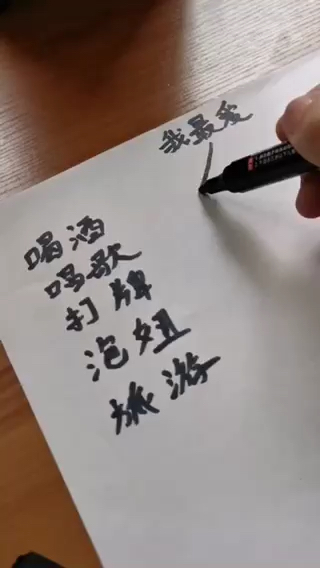 我最爱
喝酒
唱歌
打牌
泡妞
旅游